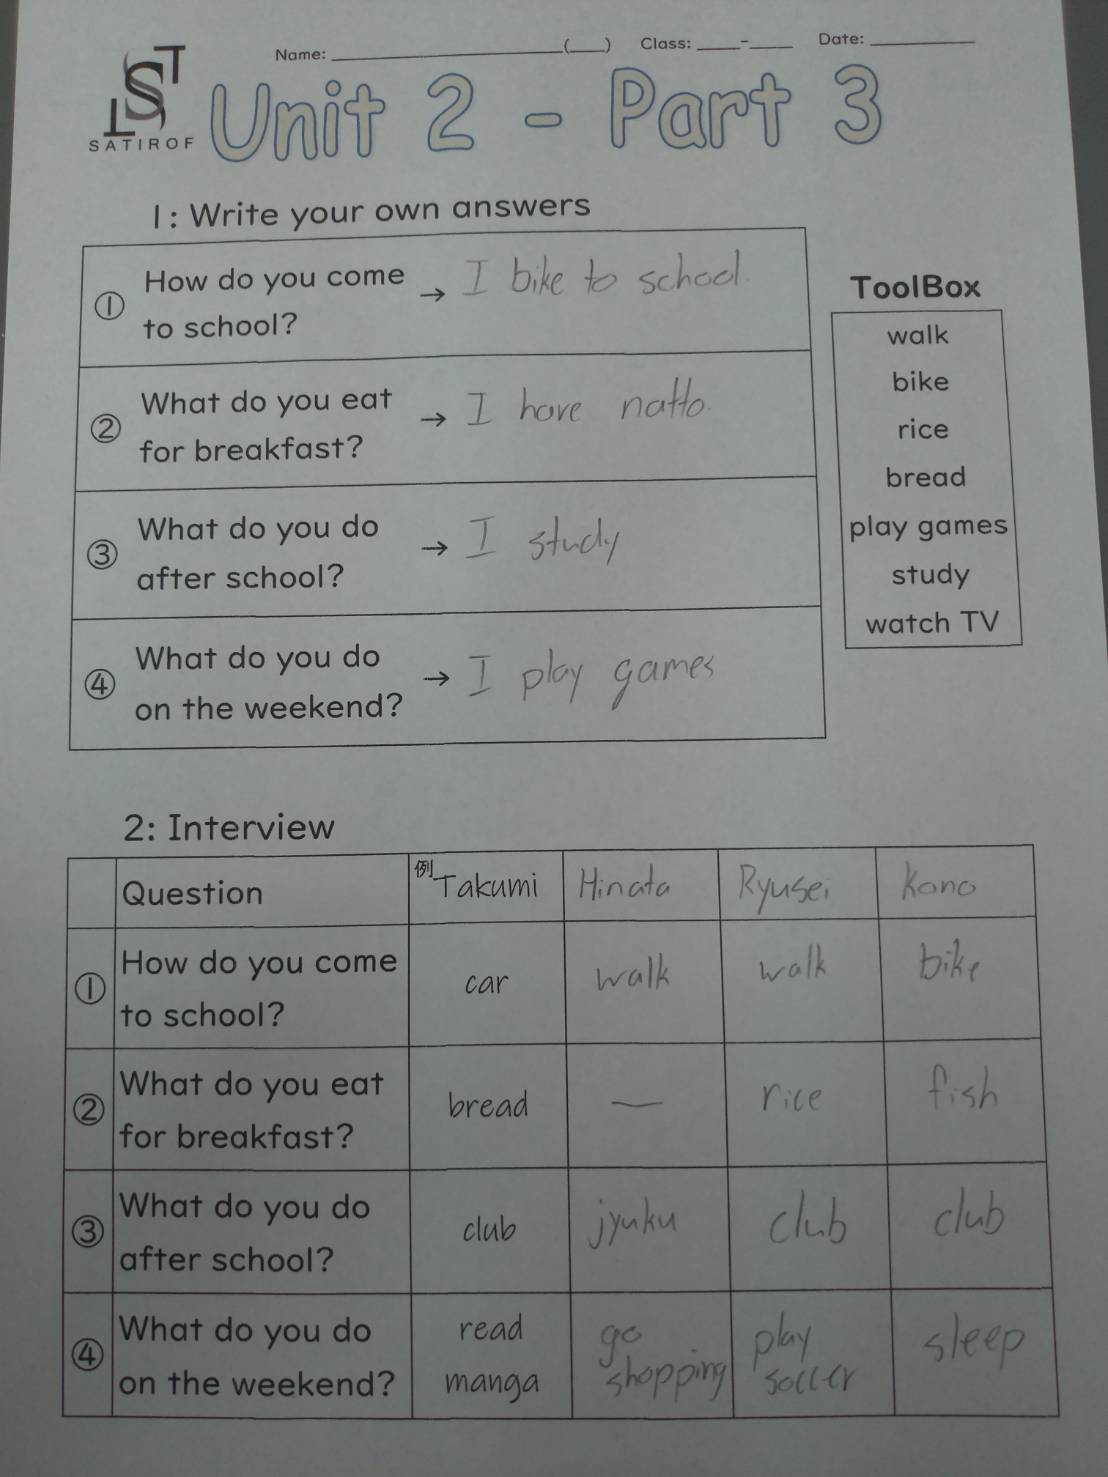 Name: ____________(___) Class: ____-____ Date: ________
LST
SATIROF
Unit 2 - Part 3
1: Write your own answers
① How do you come → I bike to school.
to school?
② What do you eat → I have natto.
for breakfast?
③ What do you do → I study
after school?
④ What do you do → I play games
on the weekend?
ToolBox
walk
bike
rice
bread
play games
study
watch TV
2: Interview
Question 例 Takumi Hinata Ryusei Kano
① How do you come car walk walk bike
to school?
② What do you eat bread — rice fish
for breakfast?
③ What do you do club jyuku club club
after school?
④ What do you do read go play sleep
on the weekend? manga shopping soccer